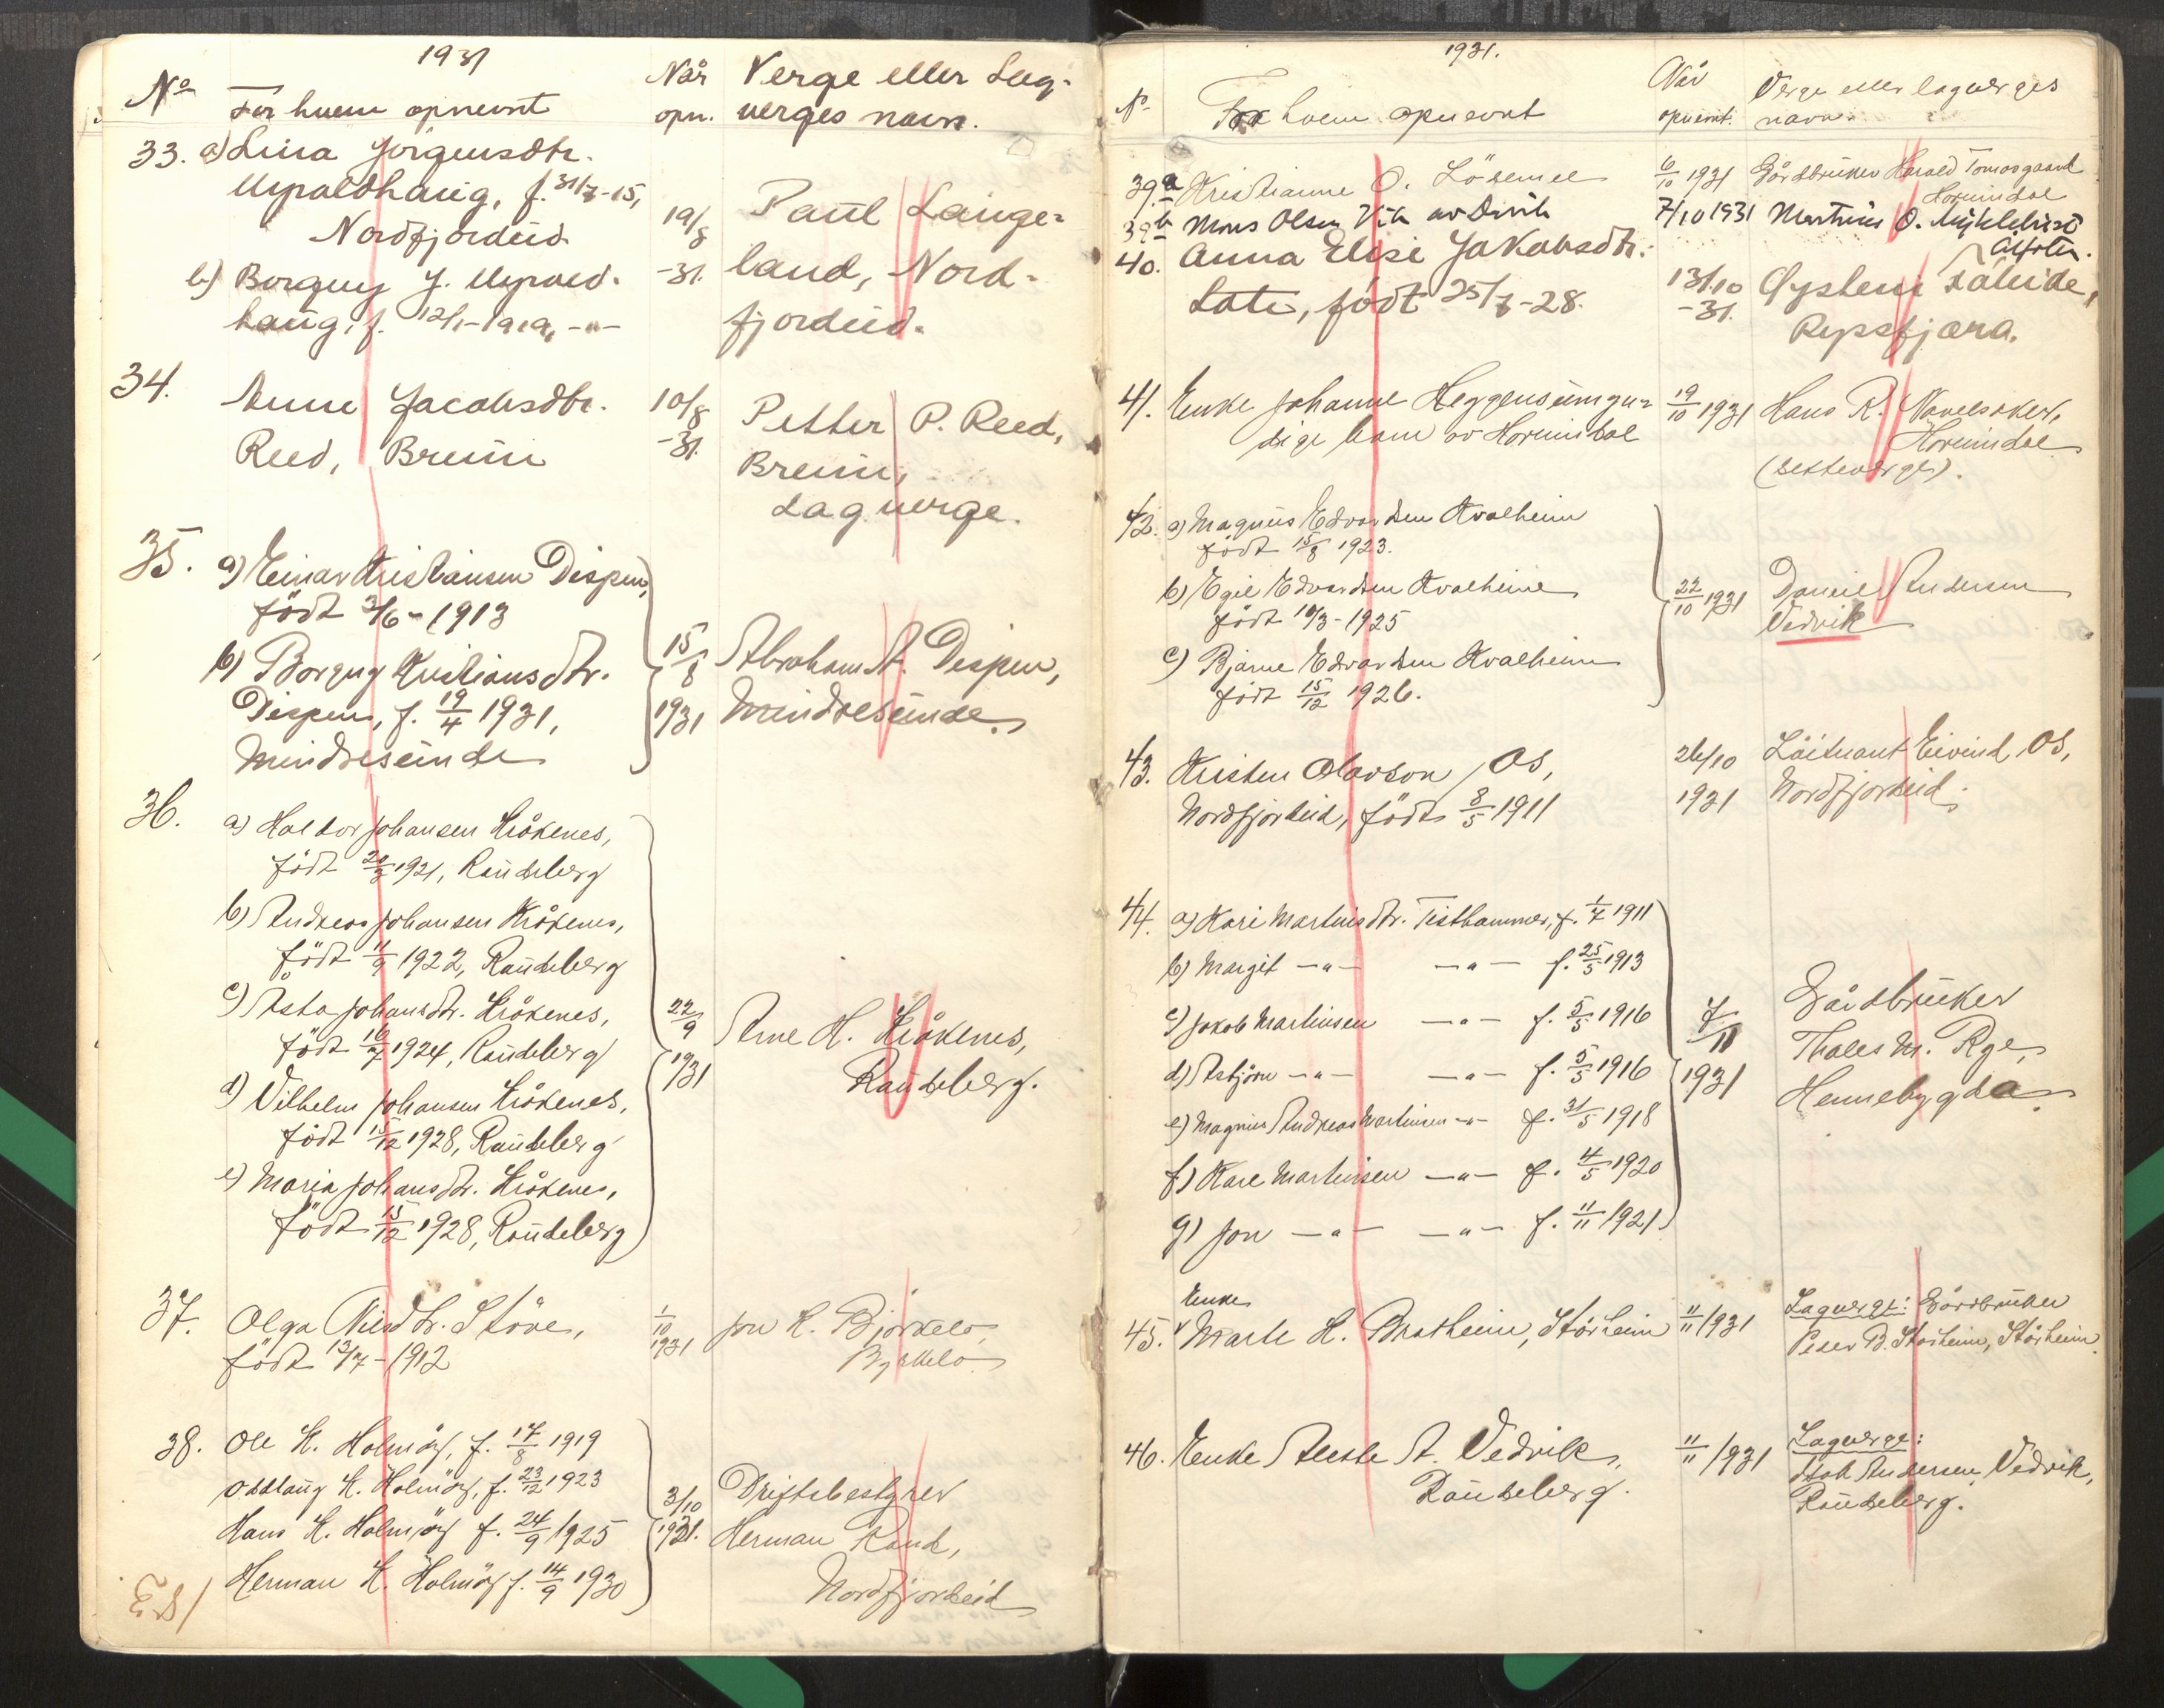 1931
No
For hvem opnevnt
Når
opn.
Verge eller Lag-
verges navn.
33. a) Lina Jörgensdtr.
Myroldhaug, f. 31/7-15,
Nordfjordeid
b) Borgny J. Myrold-
haug, f. 12/1-1919, -"-
19/8
-31.
Paul Lange-
land, Nord-
fjordeid.
34.
Anne Jacobsdtr.
Reed, Breim
10/8
-31.
Petter P. Reed,
Breim,
Lagverge.
35. a) Einar Kristiansen Dispen,
född 3/6-1913
b) Borgny Kristiansdtr.
Dispen, f. 19/4 1931,
Mindresunde
15/8
1931
Abraham A. Dispen,
Mindresunde.
36.
a) Haldor Johansen Kråkenes,
född 1921, Raudeberg
b) Andreas Johansen Kråkenes,
född 11/9 1922, Raudeberg
c) Asta Johansdtr. Kråkenes,
född 16/7 1924, Raudeberg
d) Vilhelm Johansen Kråkenes,
född 15/12 1928, Raudeberg
e) Maria Johansdtr. Kråkenes,
född 15/12 1928, Raudeberg
22/9
1931
Arne H. Kråkenes,
Raudeberg.
37. Olga Nilsdtr. Støve,
född 13/7-1912
1/10
1931
Jon K. Bjørkelo,
Byrkelo
38. Ole K. Holmöy, f. 17/8 1919
Oddlaug K. Holmöy, f. 23/12 1923
Hans K. Holmöy f. 24/9 1925
Herman K. Holmöy f. 14/9 1930
3/10
1931.
Driftsbestyrer
Herman Rand,
Nordfjordeid
1931.
No
For hvem opnevnt
Når
opnevnt.
Verge eller lagverges
navn.
39.a Kristianne O. Lödemel
6/10 1931 Gårdbruker Harald Tomasgaard
Hornindal
39b Mons Olsen Vik av Davik
7/10 1931 Martinus O. Myklebust
Ålfoten.
40. Anna Elise Jakobsdtr.
Lote, född 25/7-28.
13/10
-31.
Øystein Taleide,
Rypsfjæra.
41. Enke Johanne Heggens umyn-
dige barn av Hornindal
19/10 1931 Hans R. Navelsaker,
Hornindal
(setteverge).
42. a) Magnus Edvardsen Kvalheim
född 15/8 1923.
b) Egil Edvardsen Kvalheim
född 10/3-1925
c) Bjarne Edvardsen Kvalheim
född 15/12 1926.
22/10 1931
Daniel Andersen
Vedvik
43. Kristen Olavson Os,
Nordfjordeid, född 8/5 1911
26/10
1931
Löitnant Eivind Os,
Nordfjordeid.
44. a) Kari Martinsdtr. Tisthammer, f. 1/7 1911
b) Margit -"- -"- f. 25/5 1913
c) Jakob Martinsen -"- f. 5/5 1916
d) Asbjörn -"- -"- f. 5/5 1916
e) Magnus Andreas Martinsen -"- f. 31/5 1918
f) Kare Martinsen -"- f. 4/5 1920
g) Jon -"- -"- f. 11/11 1921
7/11
1931
Gårdbruker
Thales M. Rye,
Hennebygda.
Enke
45. Marte H. Brotheim, Stårheim
11/11 1931
Lagverge: Gårdbruker
Peder B. Starheim, Stårheim.
46. Enke A. Vedvik,
Raudeberg.
11/11 1931
Lagverge:
Andersen Vedvik,
Raudeberg.